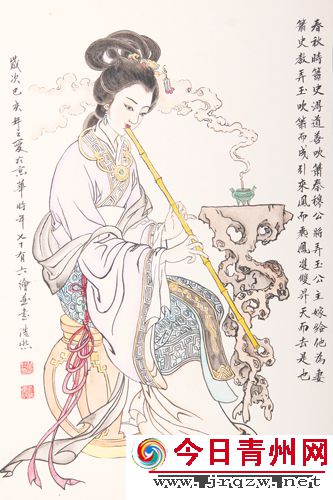 春秋時簫史淂道善吹簫秦穆公將弄玉公主嫁給他為妻
簫史教弄玉吹簫而成引來鳳而乘鳳雙雙昇天而去是也
歲次己亥年之夏於京華時年七十有六繪並書浩
今日青州网
www.jrqzw.net